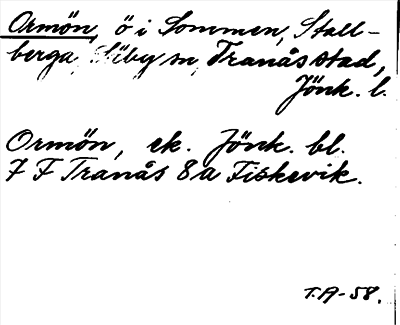 Ormön, ö i Sommen, Stall-
berga, Säby sn, Tranås stad,
Jönk. l.
Ormön, ek. Jönk. bl.
7 F Tranås 8a Fiskevik.
T.A-58.